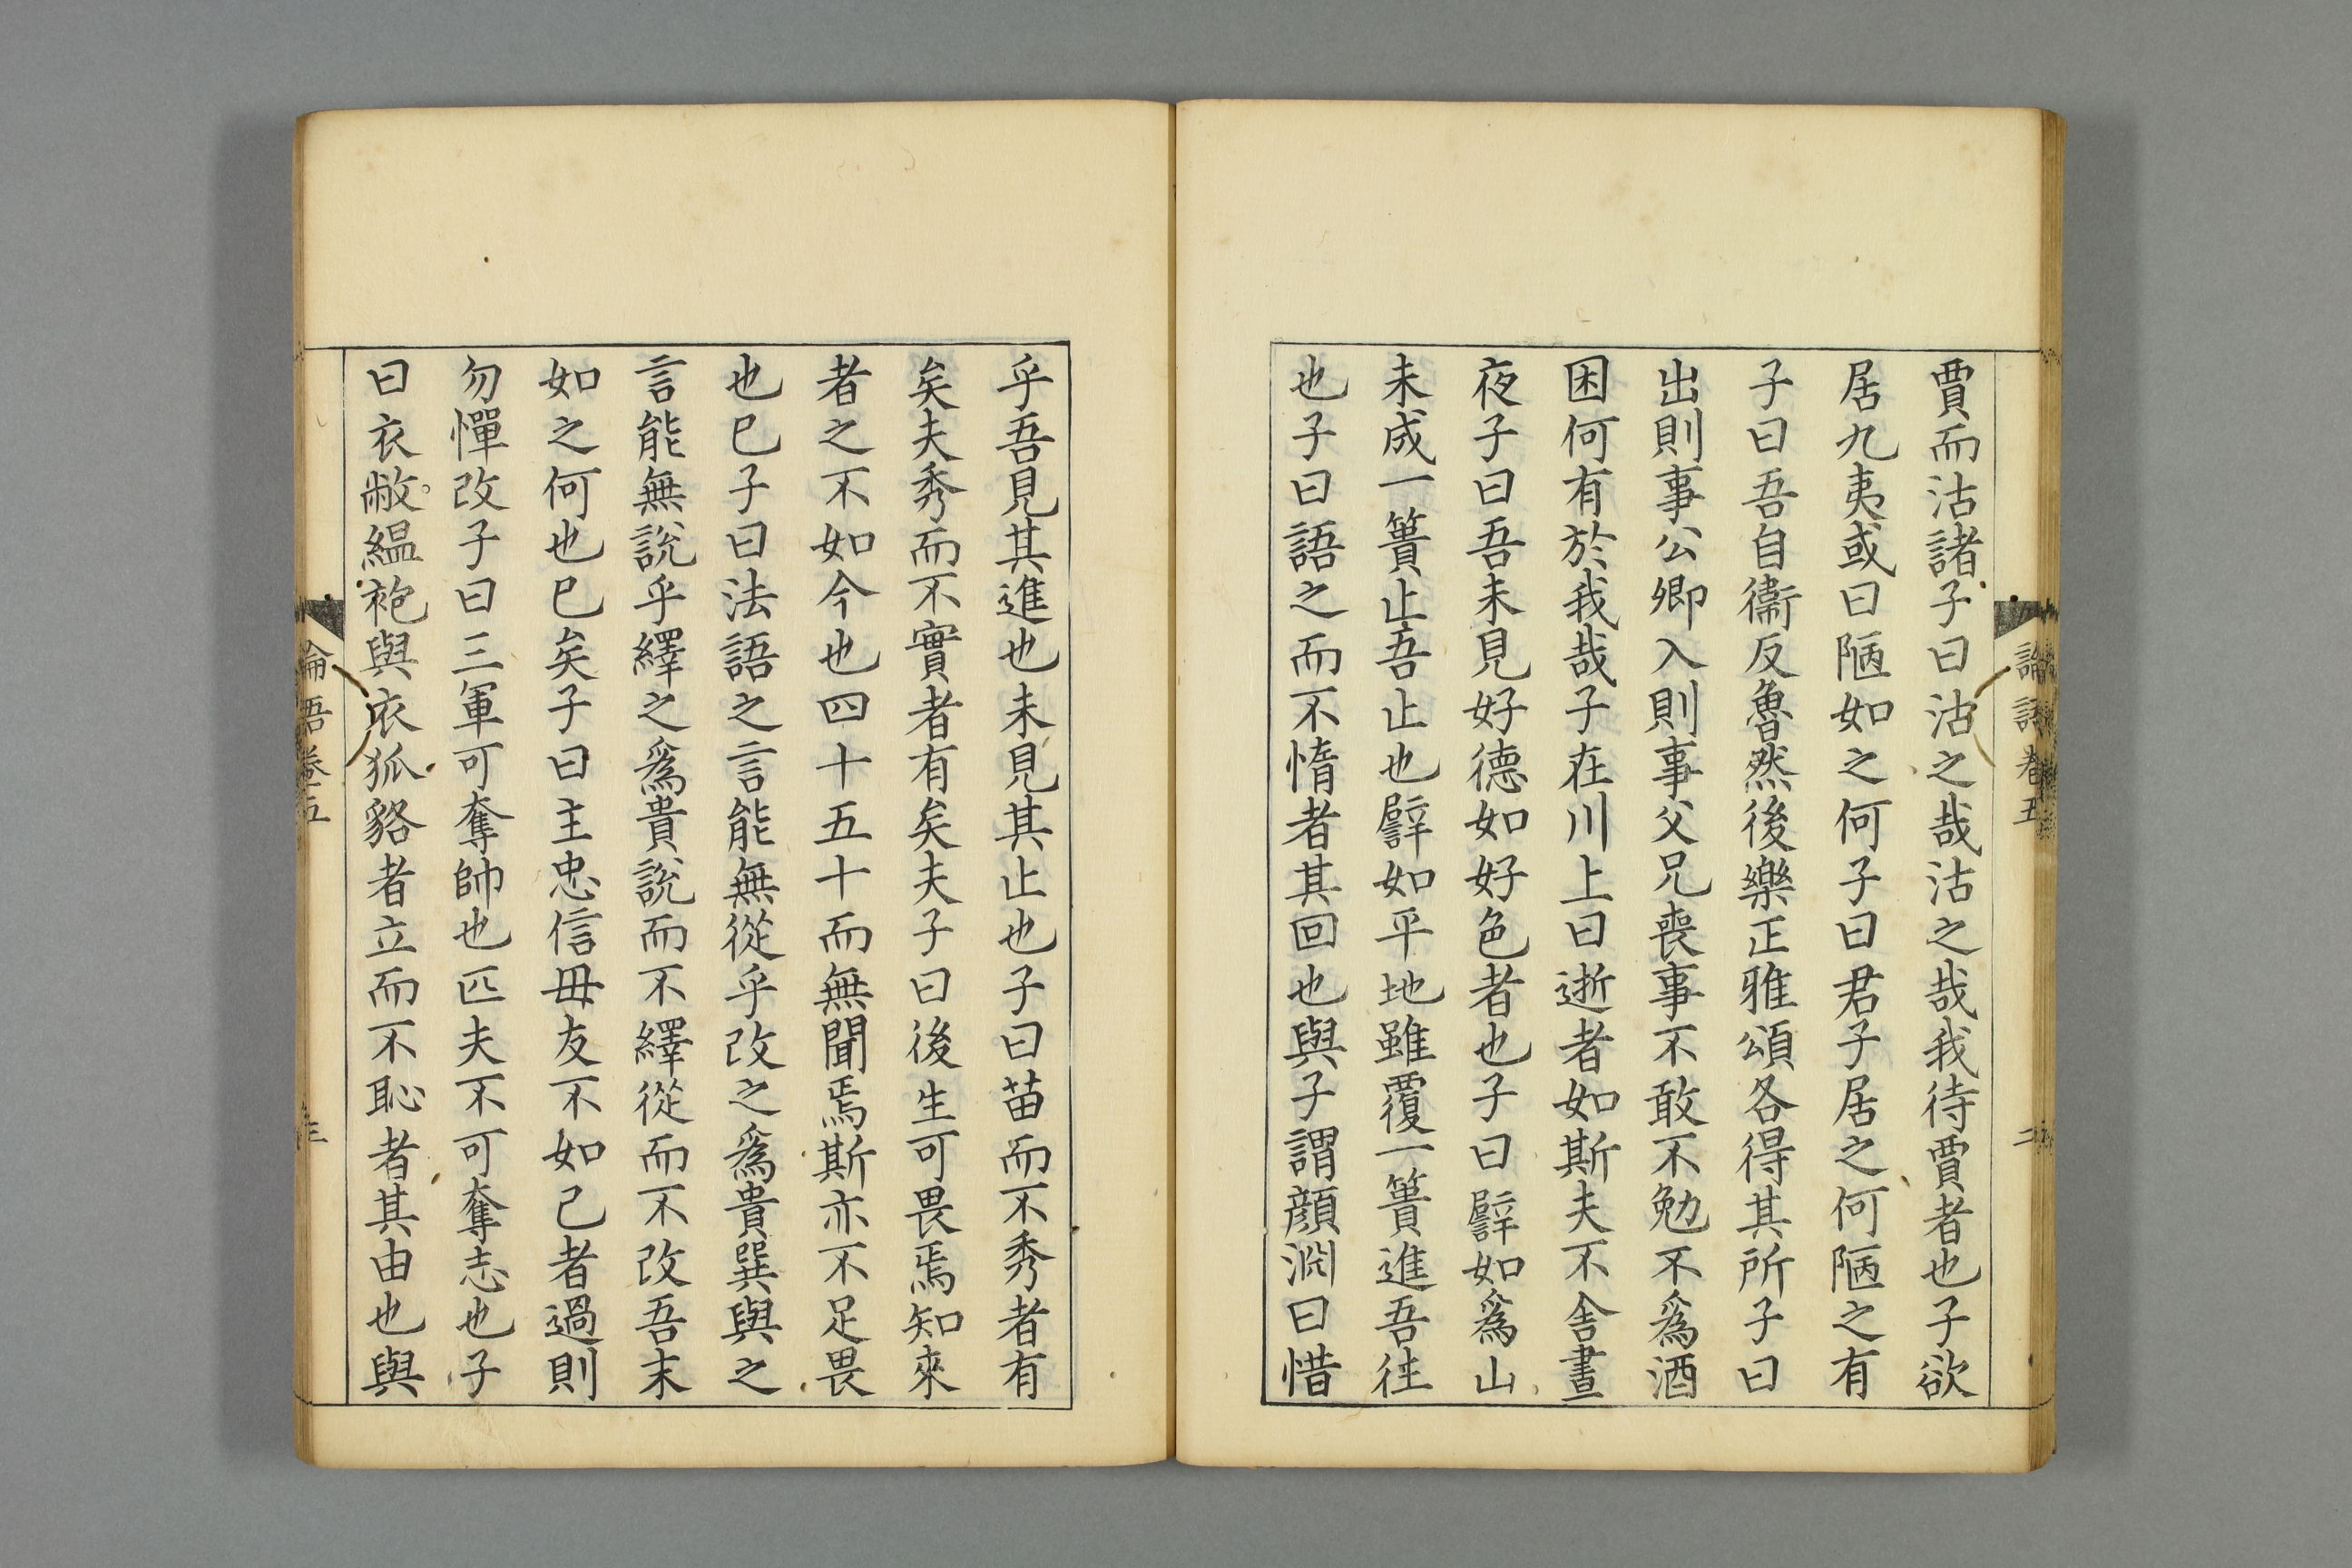 賈而沽諸子曰沽之哉沽之哉我待賈者也子欲
居九夷或曰陋如之何子曰君子居之何陋之有
子曰吾自衞反魯然後樂正雅頌各得其所子曰
出則事公卿入則事父兄喪事不敢不勉不爲酒
困何有於我哉子在川上曰逝者如斯夫不舍晝
夜子曰吾未見好德如好色者也子曰譬如爲山
未成一簣止吾止也譬如平地雖覆一簣進吾往
也子曰語之而不惰者其回也與子謂顔淵曰惜
論語卷五
二
乎吾見其進也未見其止也子曰苗而不秀者有
矣夫秀而不實者有矣夫子曰後生可畏焉知來
者之不如今也四十五十而無聞焉斯亦不足畏
也已子曰法語之言能無從乎改之爲貴巽與之
言能無說乎繹之爲貴說而不繹從而不改吾末
如之何也已矣子曰主忠信毋友不如己者過則
勿憚改子曰三軍可奪帥也匹夫不可奪志也子
曰衣敝縕袍與衣狐貉者立而不恥者其由也與
論語卷五
三